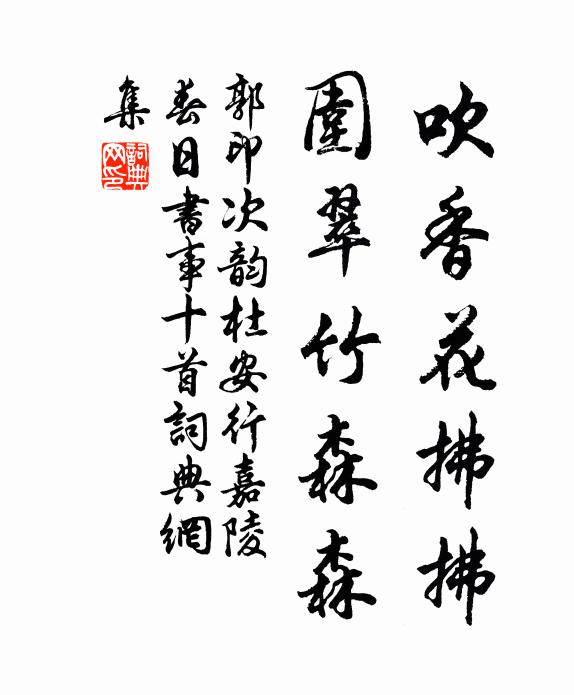 吹香花拂拂
圍翠竹森森
郭印次韵杜安行嘉陵
春日書事十首詞典網
集
詞典网印